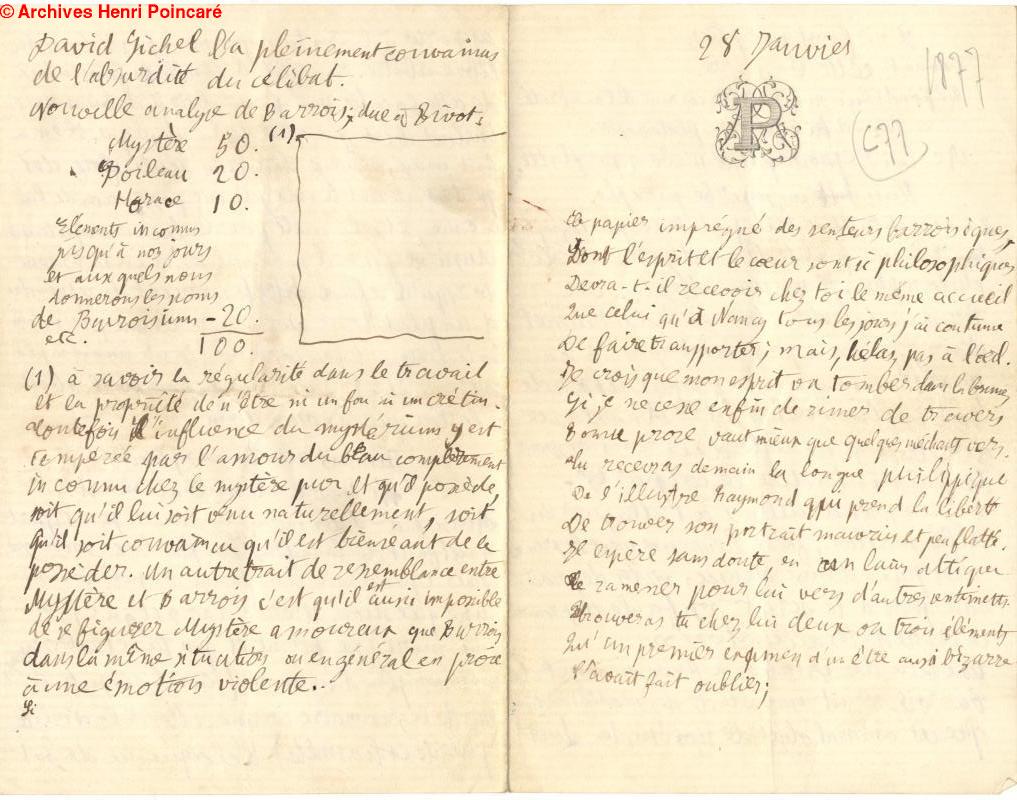 © Archives Henri Poincaré
David Gichel l'a pleinement convaincu
de l'absurdité du célibat.
Nouvelle analyse de Barrois, due à Bivot.
Mystère 50. (1)
Boileau 20.
Horace 10.
Eléments inconnus
jusqu'à nos jours
et auxquels nous
donnerons les noms
de Barroisium - 20.
etc. 100.
(1) à savoir la régularité dans le travail
et la propriété de n'être ni un fou ni un crétin.
Toutefois l'influence du mystérium y est
tempérée par l'amour du beau complètement
inconnu chez le mystère pur et qu'il possède,
soit qu'il lui soit venu naturellement, soit
qu'il soit convaincu qu'il est bienséant de le
posséder. Un autre trait de ressemblance entre
Mystère et Barrois c'est qu'il est aussi impossible
de se figurer Mystère amoureux que Barrois
dans la même situation ou en général en proie
à une émotion violente.
Si
28 Janvier
1877
P
C77
Ce papier imprégné des senteurs barroisiques,
Dont l'esprit et le cœur sont si philosophiques
Devra-t-il recevoir chez toi le même accueil
Que celui qu'à Nancy tous les jours j'ai coutume
De faire transporter; mais, hélas, pas à l'œil.
Je crois que mon esprit va tomber dans la brume
Si je ne cesse enfin de rimer de travers
Bonne prose vaut mieux que quelques méchants vers.
Tu recevras demain la longue philippique
De l'illustre Raymond qui prend la liberté
De trouver son portrait mauvais et peu flatté.
Je espère sans doute, en son latin attique
te ramener pour lui vers d'autres sentiments
Trouveras tu chez lui deux ou trois éléments
Qu'un premier examen d'un être aussi bizarre
T'avait fait oublier;